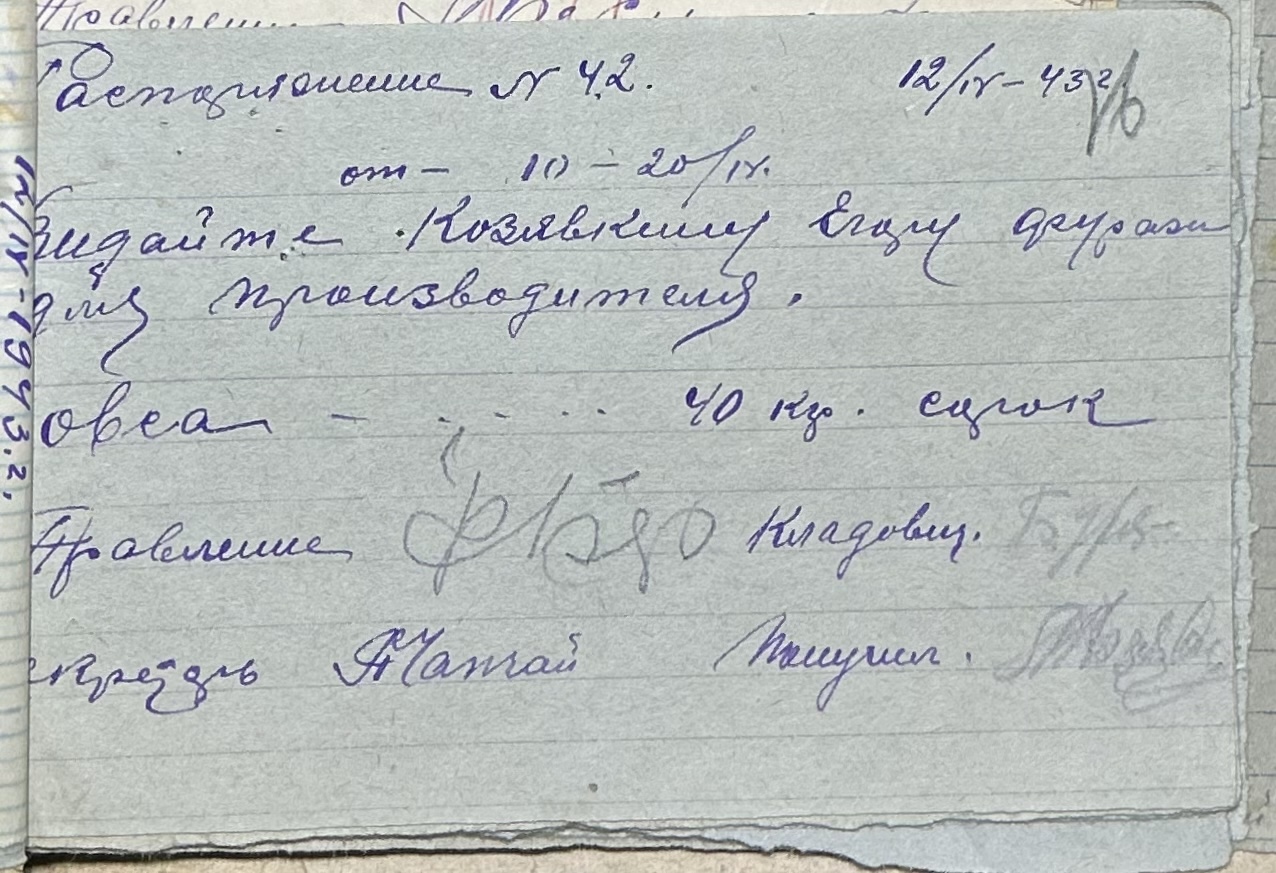 Правлени
Распоряжение N 42. 12/IV – 43 г
от – 10 – 20/IV.
Видайте Козявкину Егору фураж
для производителя.
овса – . . – . . . 40 кг. сорок
Правление Кладовщ.
екретарь Получил.
12/IV-1943.г.